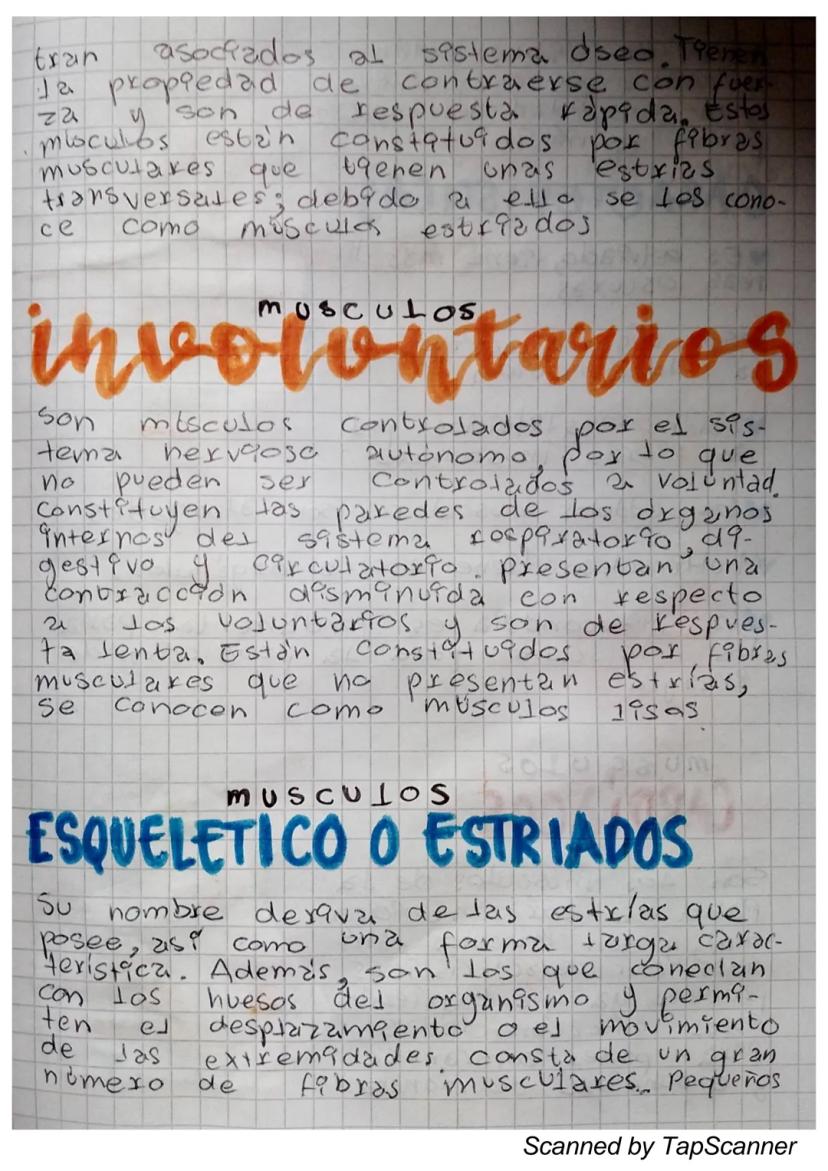 tran asociados al sistema óseo. Tienen
la propiedad de contraerse con fuer-
za y son de respuesta rápida. Estos
músculos están constituidos por fibras
musculares que tienen unas estrias
transversales; debido a ello se los cono-
ce como músculos estriados
musculos
involuntarios
Son músculos controlados por el sis-
tema nervioso autónomo, por lo que
no pueden ser controlados a voluntad.
constituyen las paredes de los órganos
internos del sistema respiratorio, di-
gestivo y circulatorio. presentan una
contracción disminuida con respecto
a los voluntarios y son de respues-
ta lenta. Están constituidos por fibras
musculares que no presentan estrías,
se conocen como músculos lisos.
musculos
ESQUELETICO O ESTRIADOS
Su nombre deriva de las estrías que
posee, así como una forma larga carac-
terística. Además, son los que conectan
con los huesos del organismo y permi-
ten el desplazamiento o el movimiento
de las extremidades. consta de un gran
número de fibras musculares. Pequeños
Scanned by TapScanner